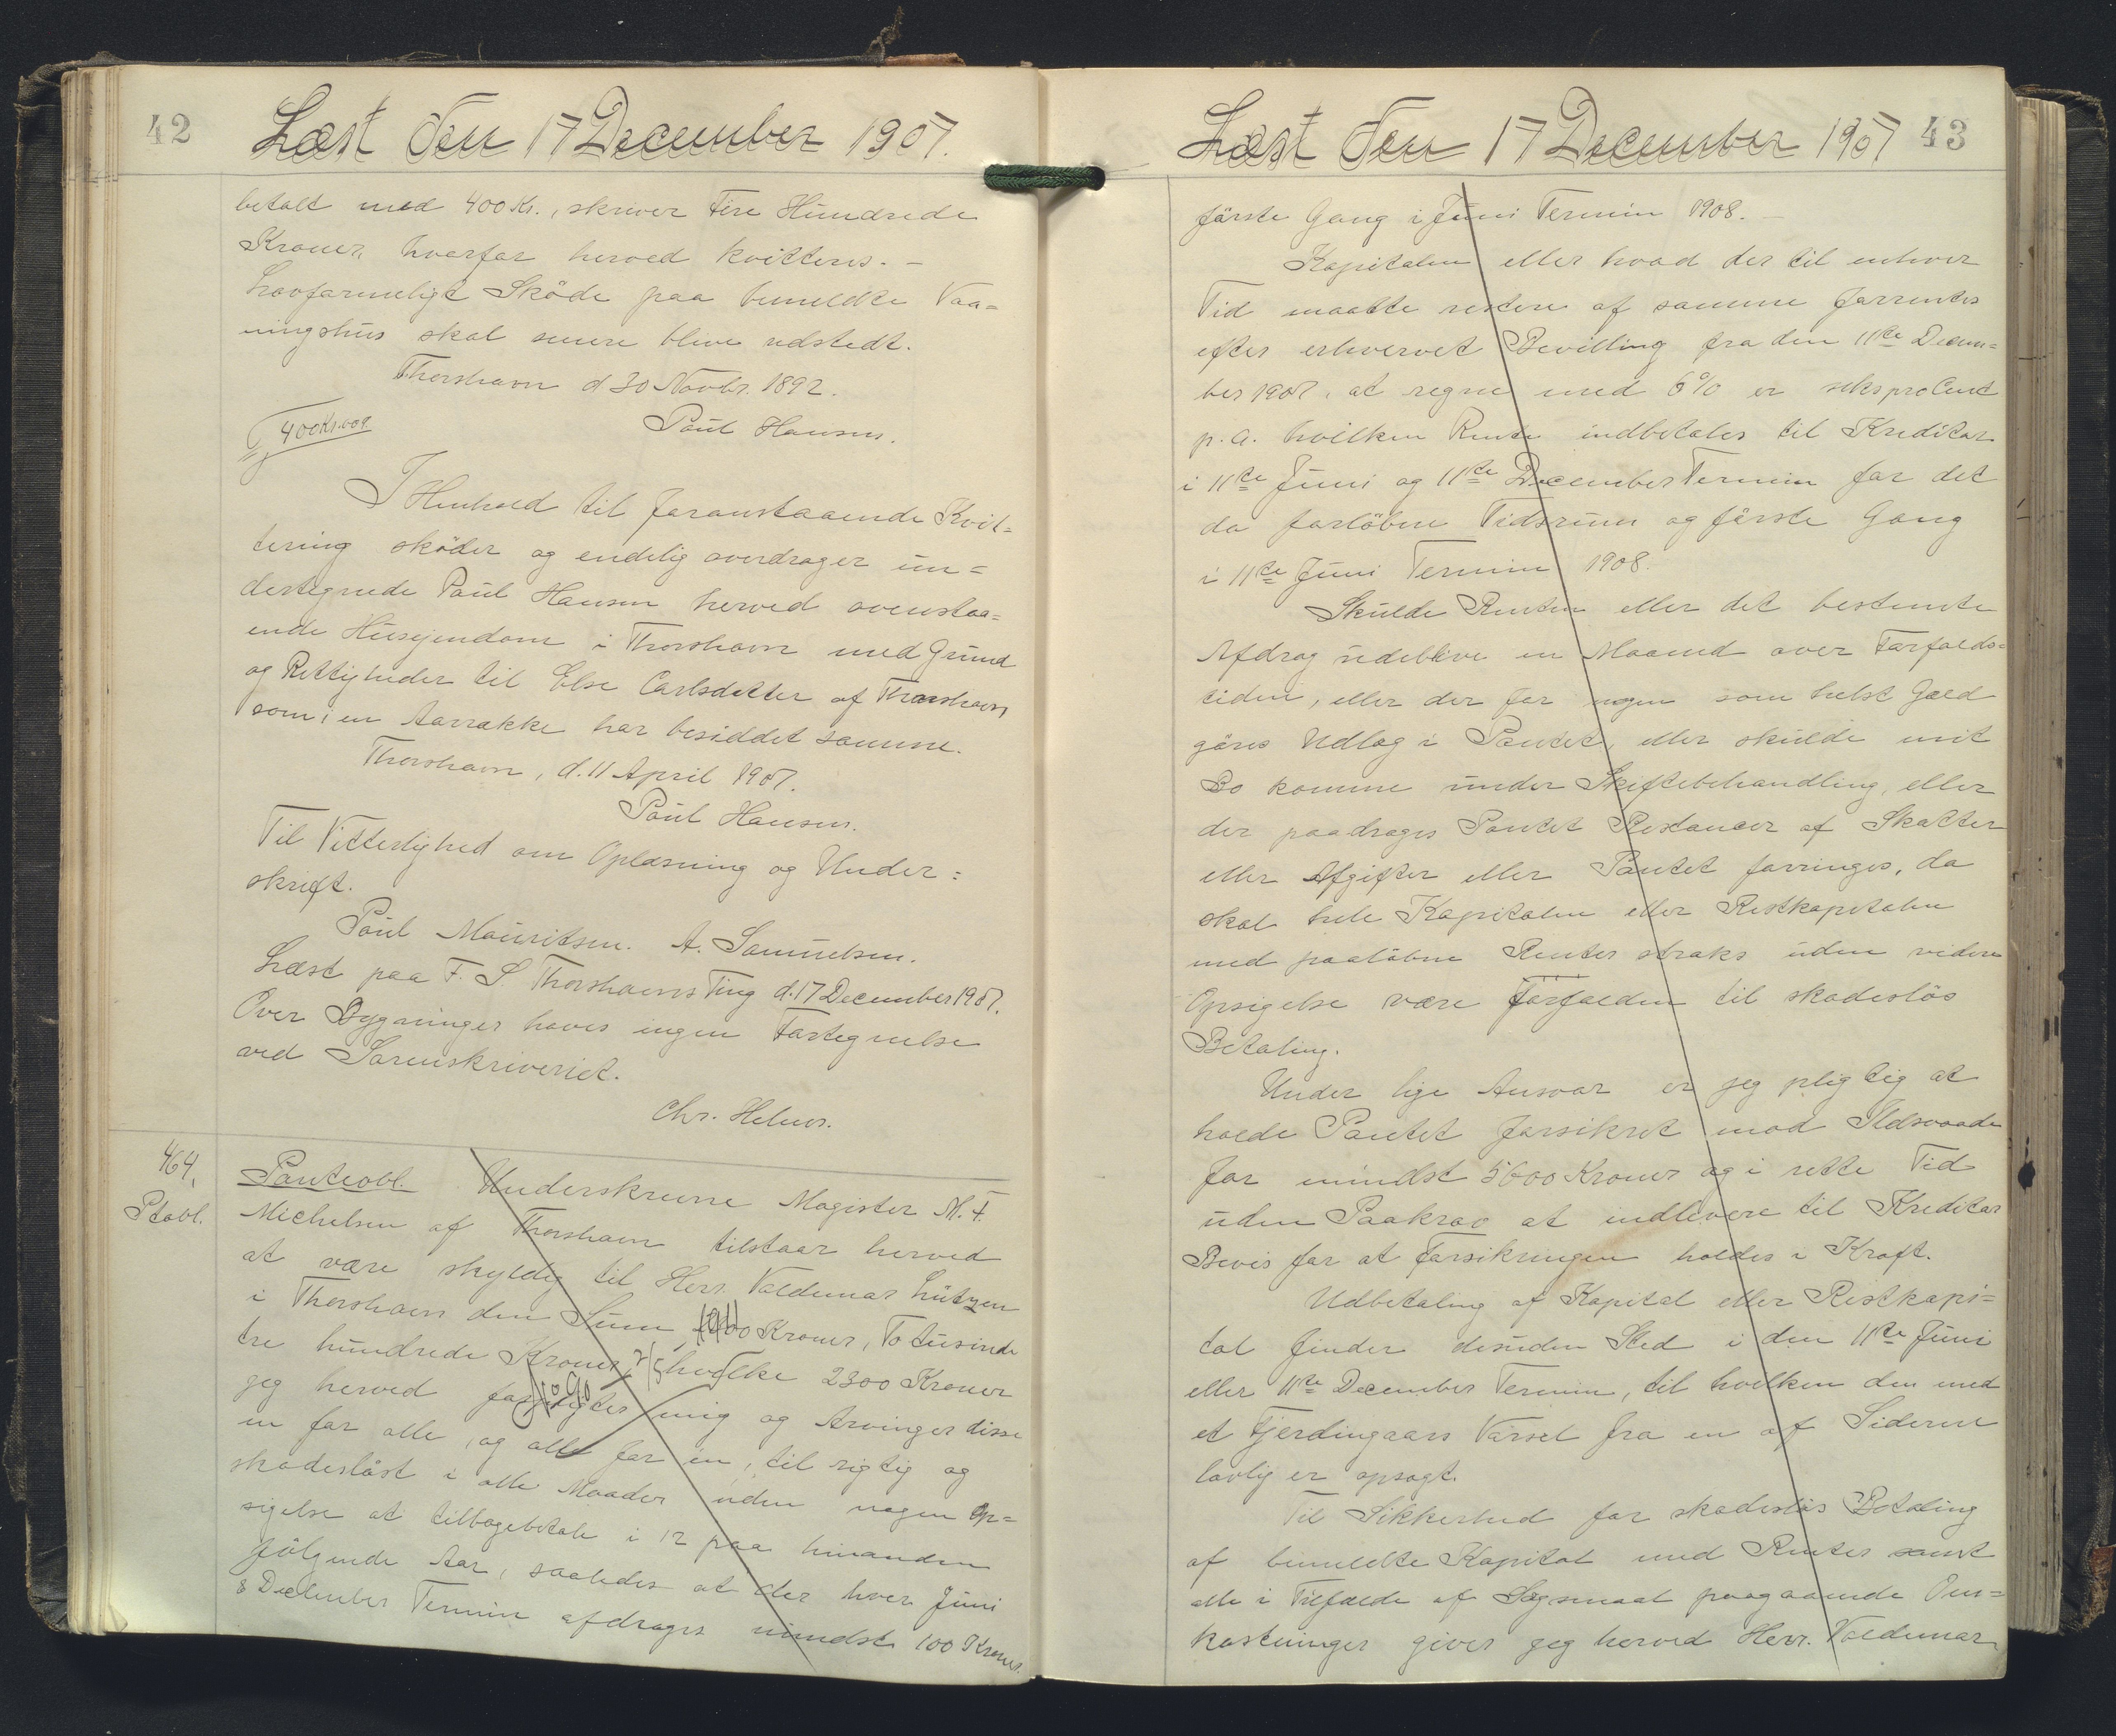 42
Læst Den 17 December 1907.
betalt med 400 Kr., skriver Fire Hundrede
Kroner, hvorfor herved kvitteres. –
Lovformeligt Sköde paa bemeldte Vaa=
ningshus skal senere blive udstedt.
Thorshavn d 30 Novbr. 1892.
400 Kr. 00
Poul Hansen.
I Henhold til foranstaaende Kvit=
tering sköder og endelig overdrager un=
dertegnede Poul Hansen herved ovenstaa=
ende Husejendom i Thorshavn med Grund
og Rettigheder til Else Carlsdatter af Thorshavn
som i en Aarrække har besiddet samme.
Thorshavn, d. 11 April 1907.
Poul Hansen.
Til Vitterlighed om Oplæsning og Under=
skrift.
Poul Mouritsen. A. Samuelsen.
Læst paa F. S Thorshavns Ting d. 17 December 1907.
Over Bygninger haves ingen Fortegnelse
ved Sorenskriveriet.
Chr. Helms.
464,
Ptobl.
Panteobl. Underskrevne Magister M. F.
Michelsen af Thorshavn tilstaar herved
at være skyldig til Herr. Valdemar Lützen
i Thorshavn den Sum Kroner, To tusinde
tre hundrede Kroner, hvilke 2300 Kroner
jeg herved forpligter mig og Arvinger disse
en for alle, og alle for en, til rigtig og
skadeslöst i alle Maader uden nogen Op=
sigelse at tilbagebetale i 12 paa hinanden
følgende Aar, saaledes at der hver Juni
& December Termin afdrages mindst 100 Kroner.
Læst Den 17 December 1907
43
förste Gang i Juni Termin 1908. –
Kapitalen eller hvad der til enhver
Tid maatte restere af samme forrentes
efter erhvervet Bevilling fra den 11te Decem=
ber 1907, at regne med 6% er seks proCent
p. a. hvilken Rente indbetales til Kreditor
i 11te Juni og 11te December Termin for det
da forlöbne Tidsrum og förste Gang
i 11te Juni Termin 1908.
Skulde Renten eller det bestemte
Afdrag udeblive en Maaned over Forfalds=
tiden, eller der for nogen som helst Gæld
göres Udlæg i Pantet, eller skulde mit
Bo komme under Skiftebehandling, eller
der paadrages Pantet Restancer af Skatter
eller Afgifter eller Pantet forringes, da
skal hele Kapitalen eller Restkapitalen
med paalöbne Renter straks uden videre
Opsigelse være forfalden til skadeslös
Betaling.
Under lige Ansvar er jeg pligtig at
holde Pantet forsikret mod Ildsvaade
for mindst 5600 Kroner og i rette Tid
uden Paakrav at indlevere til Kreditor
Bevis for at Forsikringen holdes i Kraft.
Udbetaling af Kapital eller Restkapi=
tal finder desuden Sted i den 11te Juni
eller 11te December Termin, til hvilken den med
et Fjerdingaars Varsel fra en af Siderne
lovlig er opsagt.
Til Sikkerhed for skadeslös Betaling
af bemeldte Kapital med Renter samt
alle i Tilfælde af Søgsmaal paagaaende Om=
kostninger giver jeg herved Herr. Valdemar